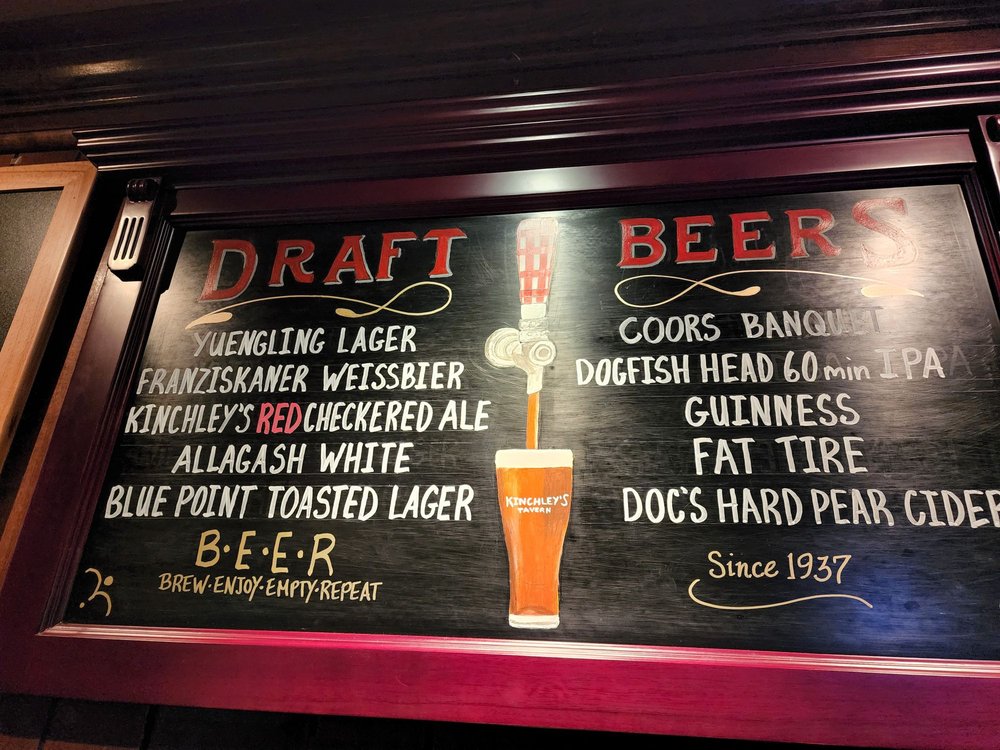 DRAFT BEERS
YUENGLING LAGER
FRANZISKANER WEISSBIER
KINCHLEY'S RED CHECKERED ALE
ALLAGASH WHITE
BLUE POINT TOASTED LAGER
B·E·E·R
BREW·ENJOY·EMPTY·REPEAT
KINCHLEY'S
TAVERN
COORS BANQUET
DOGFISH HEAD 60 min IPA
GUINNESS
FAT TIRE
DOC'S HARD PEAR CIDER
Since 1937